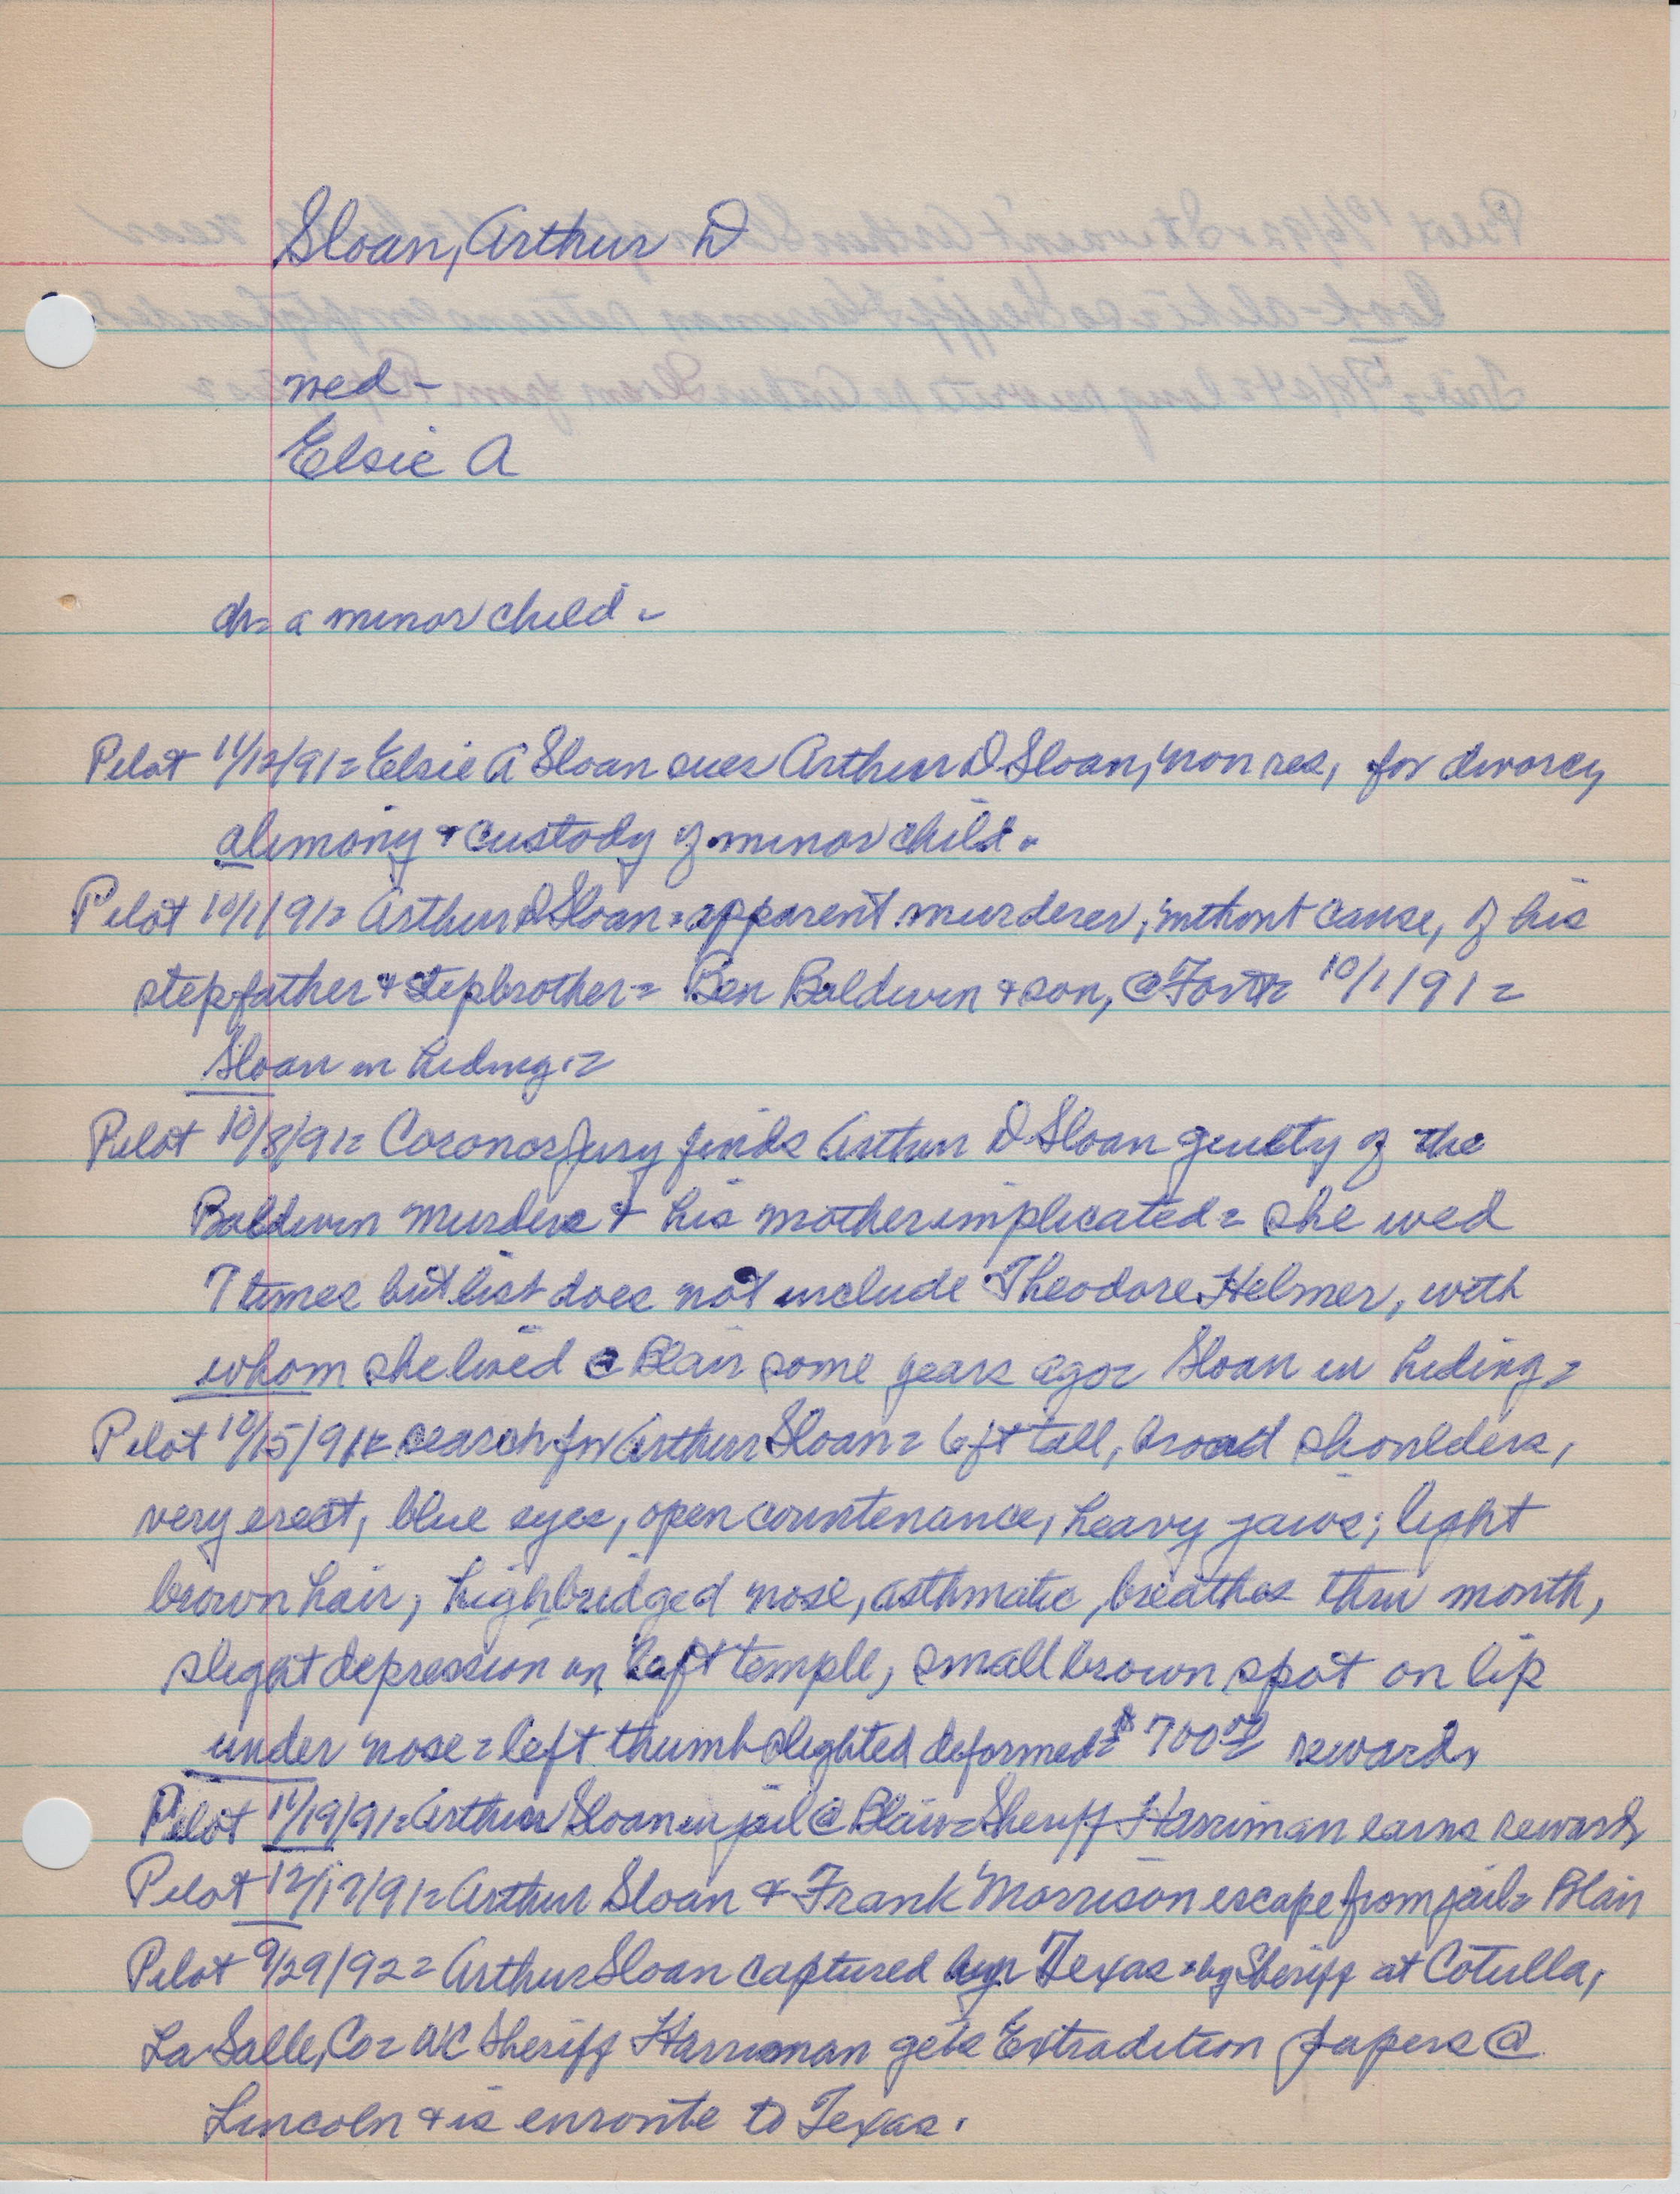 Sloan, Arthur D
wed -
Elsie A
ch= a minor child -
Pilot 11/12/91= Elsie A Sloan sues Arthur D Sloan, non res, for divorce,
alimony & custody of minor child.
Pilot 10/1/91= Arthur D Sloan = apparent murderer, without cause, of his
stepfather & stepbrother = Ben Baldwin & son, @ 10/1/91=
Sloan in hiding =
Pilot 10/8/91= Coroner Jury finds Arthur D Sloan guilty of the
Baldwin murders & his mother implicated = she wed
7 times but list does not include Theodore Helmer, with
whom she lived @ Blair some years ago = Sloan in hiding =
Pilot 10/15/91= search for Arthur Sloan = 6 ft tall, broad shoulders,
very erect, blue eyes, open countenance, heavy jaws; light
brown hair; high bridged nose, asthmatic, breathes thru mouth,
slight depression on left temple, small brown spot on lip
under nose = left thumb slighted deformed = $700.00 reward,
Pilot 11/19/91= Arthur Sloan in jail @ Blair = Sheriff Harriman earns reward,
Pilot 12/17/91= Arthur Sloan & Frank Morrison escape from jail = Blair
Pilot 9/29/92= Arthur Sloan captured Texas = by Sheriff at Cotulla,
La Salle, Co = WC Sheriff Harriman gets Extradition papers @
Lincoln & is enroute to Texas.